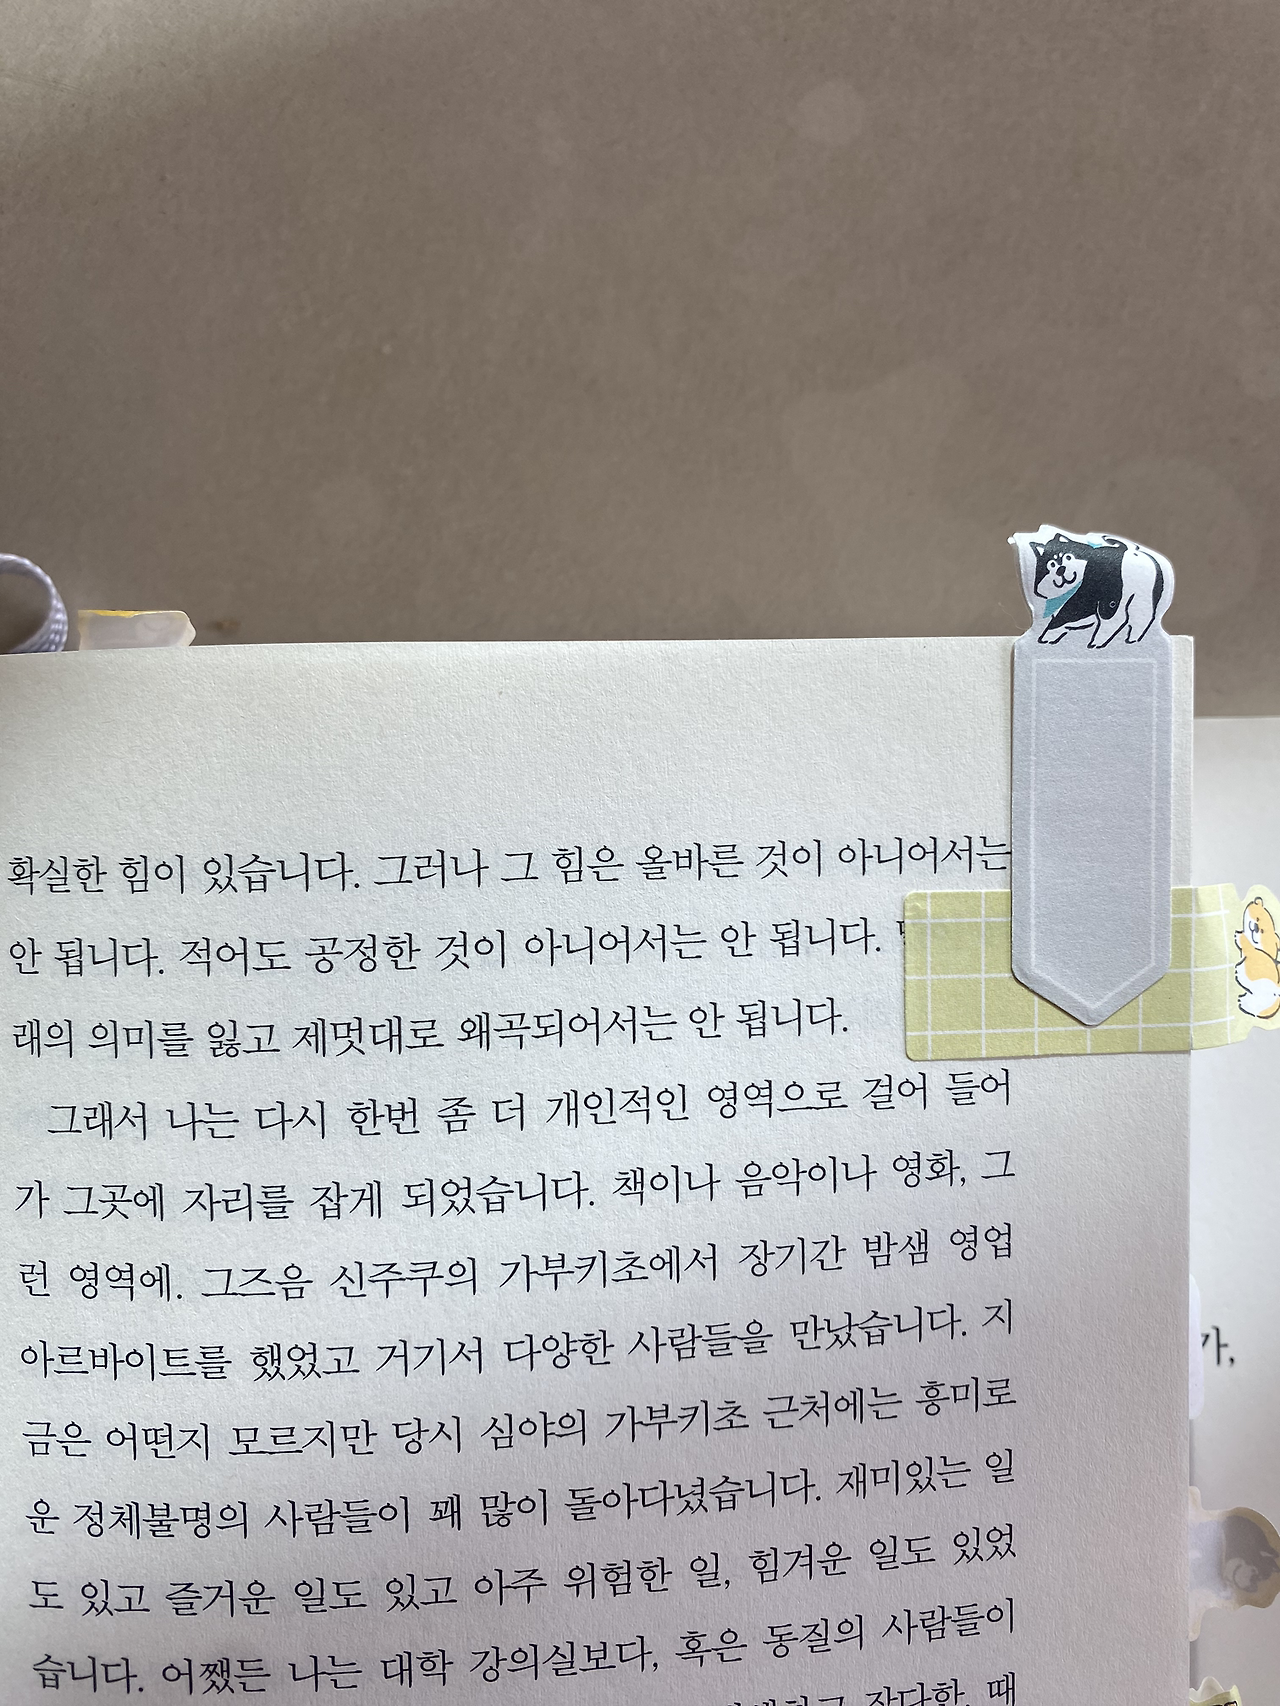 확실한 힘이 있습니다. 그러나 그 힘은 올바른 것이 아니어서는
안 됩니다. 적어도 공정한 것이 아니어서는 안 됩니다.
래의 의미를 잃고 제멋대로 왜곡되어서는 안 됩니다.
그래서 나는 다시 한번 좀 더 개인적인 영역으로 걸어 들어
가 그곳에 자리를 잡게 되었습니다. 책이나 음악이나 영화, 그
런 영역에. 그즈음 신주쿠의 가부키초에서 장기간 밤샘 영업
아르바이트를 했었고 거기서 다양한 사람들을 만났습니다. 지
금은 어떤지 모르지만 당시 심야의 가부키초 근처에는 흥미로
운 정체불명의 사람들이 꽤 많이 돌아다녔습니다. 재미있는 일
도 있고 즐거운 일도 있고 아주 위험한 일, 힘겨운 일도 있었
습니다. 어쨌든 나는 대학 강의실보다, 혹은 동질의 사람들이
때
가,